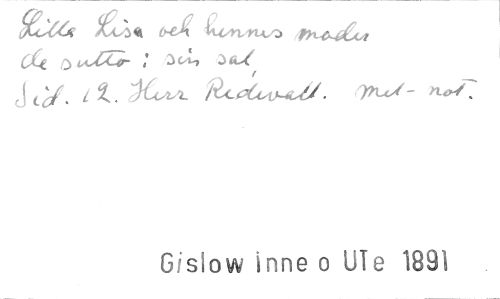 Litta Lisa och hennes moder
de sutto i sin sal,
Sid. 12. Herr Redevall. met-not.
Gislow inne o UTe 1891